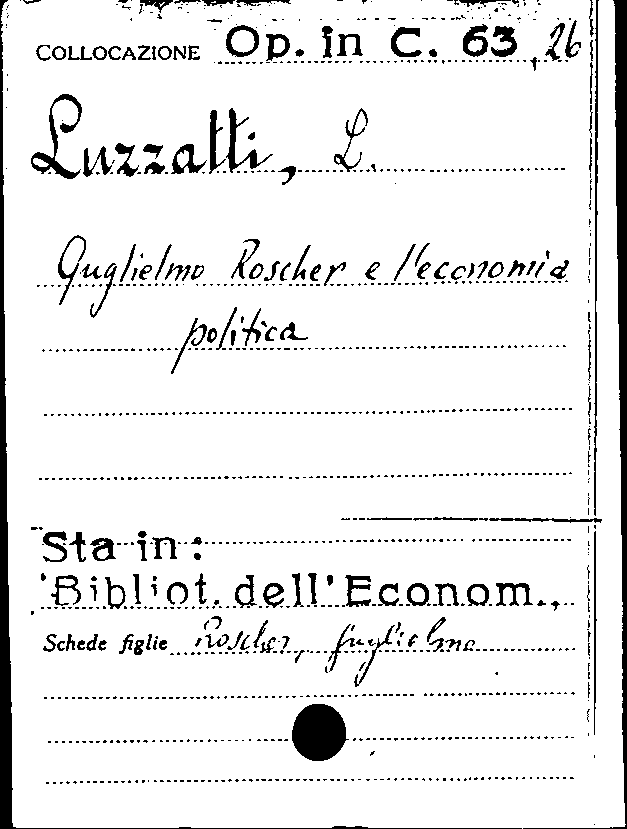 COLLOCAZIONE Op. in C. 63, 26
Luzzatti, L.
Guglielmo Roscher e l'economia
politica
Sta in:
Bibliot. dell'Econom.,
Schede figlie Roscher, Guglielmo